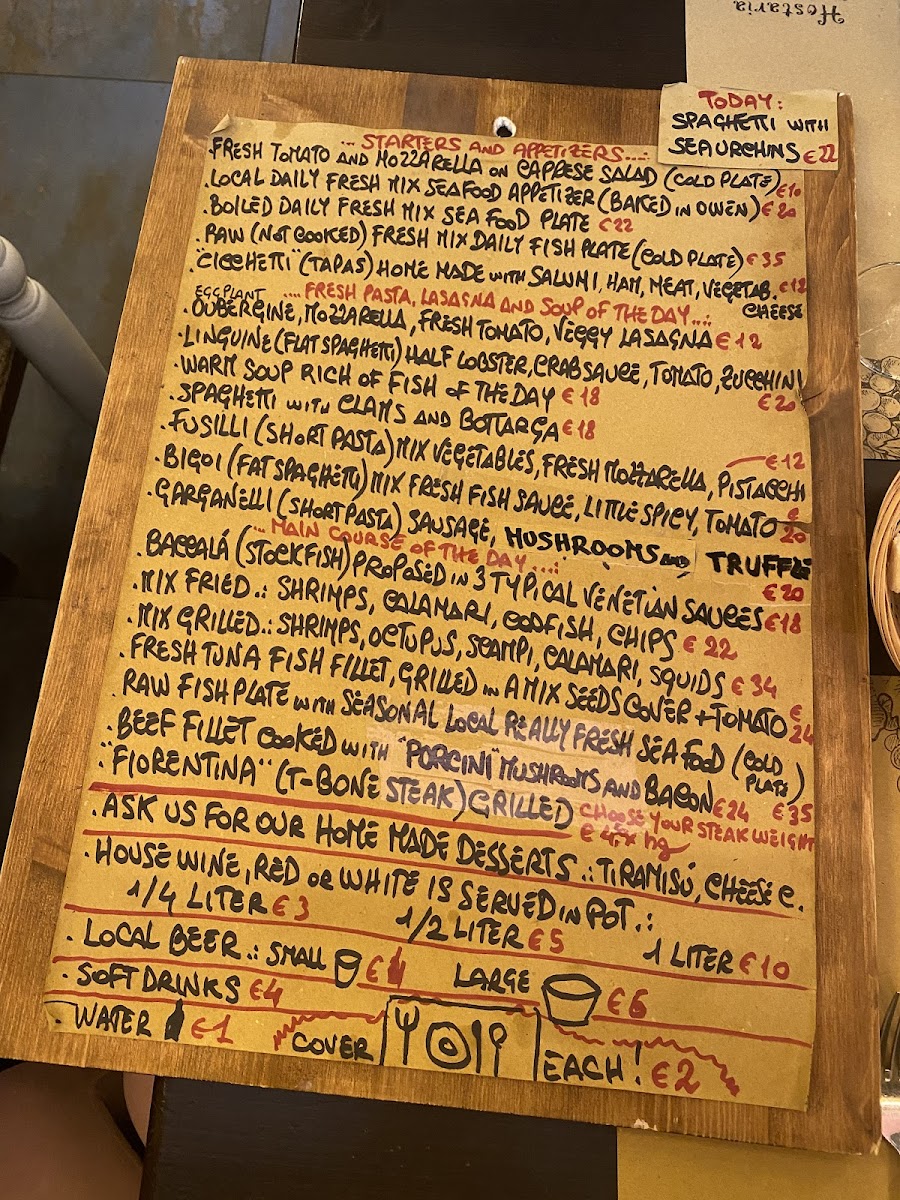 Hostaria
TODAY:
SPAGHETTI WITH
SEAURCHINS €22
... STARTERS AND APPETIZERS...:
FRESH TOMATO AND MOZZARELLA OR CAPRESE SALAD (COLD PLATE) €10
.LOCAL DAILY FRESH MIX SEAFOOD APPETIZER (BAKED IN OWEN) €20
.BOILED DAILY FRESH MIX SEA FOOD PLATE €22
.RAW (NOT COOKED) FRESH MIX DAILY FISH PLATE (COLD PLATE) €35
."CICCHETTI" (TAPAS) HOME MADE WITH SALUMI, HAM, MEAT, VEGETAB. €18
CHEESE
.... FRESH PASTA, LASAGNA AND SOUP OF THE DAY...:
EGGPLANT
.OUBERGINE, MOZZARELLA, FRESH TOMATO, VEGGY LASAGNA €12
.LINGUINE (FLAT SPAGHETTI) HALF LOBSTER, CRAB SAUCE, TOMATO, ZUCCHINI
€20
.WARM SOUP RICH OF FISH OF THE DAY €18
.SPAGHETTI WITH CLAMS AND BOTTARGA €18
.FUSILLI (SHORT PASTA) MIX VEGETABLES, FRESH MOZZARELLA, PISTACCHI €12
.BIGOI (FAT SPAGHETTI) MIX FRESH FISH SAUCE, LITTLE SPICY, TOMATO €20
.GARGANELLI (SHORT PASTA) SAUSAGE, MUSHROOMS AND TRUFFLE
€20
... MAIN COURSE OF THE DAY...:
.BACCALÁ (STOCKFISH) PROPOSED IN 3 TYPICAL VENETIAN SAUCES €18
.MIX FRIED.: SHRIMPS, CALAMARI, CODFISH, CHIPS €22
.MIX GRILLED.: SHRIMPS, OCTUPUS, SCAMPI, CALAMARI, SQUIDS €34
.FRESH TUNA FISH FILLET, GRILLED IN A MIX SEEDS COVER + TOMATO €24
.RAW FISH PLATE WITH SEASONAL LOCAL REALLY FRESH SEA FOOD (COLD PLATE)
€35
.BEEF FILLET COOKED WITH "PORCINI" MUSHROOMS AND BACON €24
."FIORENTINA" (T-BONE STEAK) GRILLED CHOOSE YOUR STEAK WEIGHT
hg
.ASK US FOR OUR HOME MADE DESSERTS.: TIRAMISÚ, CHEESE C.
.HOUSE WINE, RED OR WHITE IS SERVED IN POT.:
1/4 LITER €3 1/2 LITER €5 1 LITER €10
.LOCAL BEER.: SMALL €4 LARGE €6
.SOFT DRINKS €4
.WATER €1 COVER EACH! €2